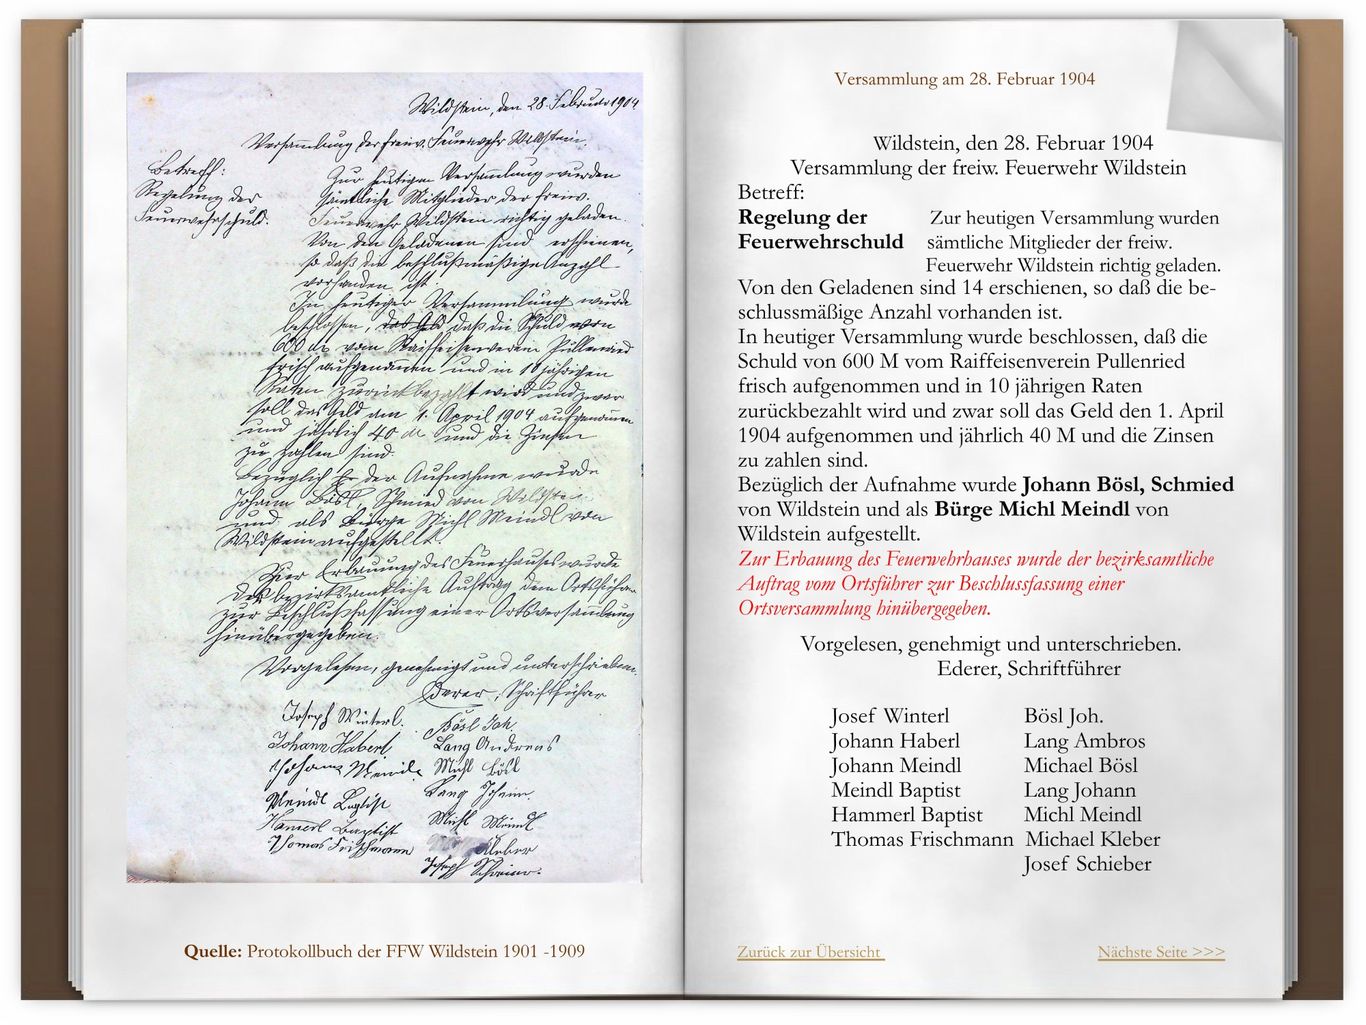 Wildstein, den 28. Februar 1904
Versammlung der freiw. Feuerwehr Wildstein.
Betreff:
Regelung der
Feuerwehrschuld.
Zur heutigen Versammlung wurden
sämtliche Mitglieder der freiw.
Feuerwehr Wildstein richtig geladen.
Von den Geladenen sind erschienen,
so daß die beschlußmäßige Anzahl
vorhanden ist.
In heutiger Versammlung wurde
beschlossen, daß die Schuld von
600 M vom Raiffeisenverein Pullenried
frisch aufgenommen und in 10 jährigen
Raten zurückbezahlt wird und zwar
soll das Geld am 1. April 1904 aufgenommen
und jährlich 40 M und die Zinsen
zu zahlen sind.
Bezüglich der Aufnahme wurde
Johann Bösl, Schmied von Wildstein
und als Bürge Michl Meindl von
Wildstein aufgestellt.
Erbauung des Feuerhauses wurde
der bezirksamtliche Auftrag dem Ortsführer
zur Beschlußfassung einer Ortsversammlung
hinübergegeben.
Vorgelesen, genehmigt und unterschrieben.
Ederer, Schriftführer
Joseph Winterl. Bösl Joh.
Johann Haberl Lang Andreas
Johann Meindl Michl Bösl
Meindl Baptist Lang Johann.
Hammerl Baptist Michl Meindl
Thomas Frischmann Kleber
Joseph
Quelle: Protokollbuch der FFW Wildstein 1901 -1909
Versammlung am 28. Februar 1904
Wildstein, den 28. Februar 1904
Versammlung der freiw. Feuerwehr Wildstein
Betreff:
Regelung der Zur heutigen Versammlung wurden
Feuerwehrschuld sämtliche Mitglieder der freiw.
Feuerwehr Wildstein richtig geladen.
Von den Geladenen sind 14 erschienen, so daß die be-
schlussmäßige Anzahl vorhanden ist.
In heutiger Versammlung wurde beschlossen, daß die
Schuld von 600 M vom Raiffeisenverein Pullenried
frisch aufgenommen und in 10 jährigen Raten
zurückbezahlt wird und zwar soll das Geld den 1. April
1904 aufgenommen und jährlich 40 M und die Zinsen
zu zahlen sind.
Bezüglich der Aufnahme wurde Johann Bösl, Schmied
von Wildstein und als Bürge Michl Meindl von
Wildstein aufgestellt.
Zur Erbauung des Feuerwehrhauses wurde der bezirksamtliche
Auftrag vom Ortsführer zur Beschlussfassung einer
Ortsversammlung hinübergegeben.
Vorgelesen, genehmigt und unterschrieben.
Ederer, Schriftführer
Josef Winterl Bösl Joh.
Johann Haberl Lang Ambros
Johann Meindl Michael Bösl
Meindl Baptist Lang Johann
Hammerl Baptist Michl Meindl
Thomas Frischmann Michael Kleber
Josef Schieber
Zurück zur Übersicht
Nächste Seite >>>